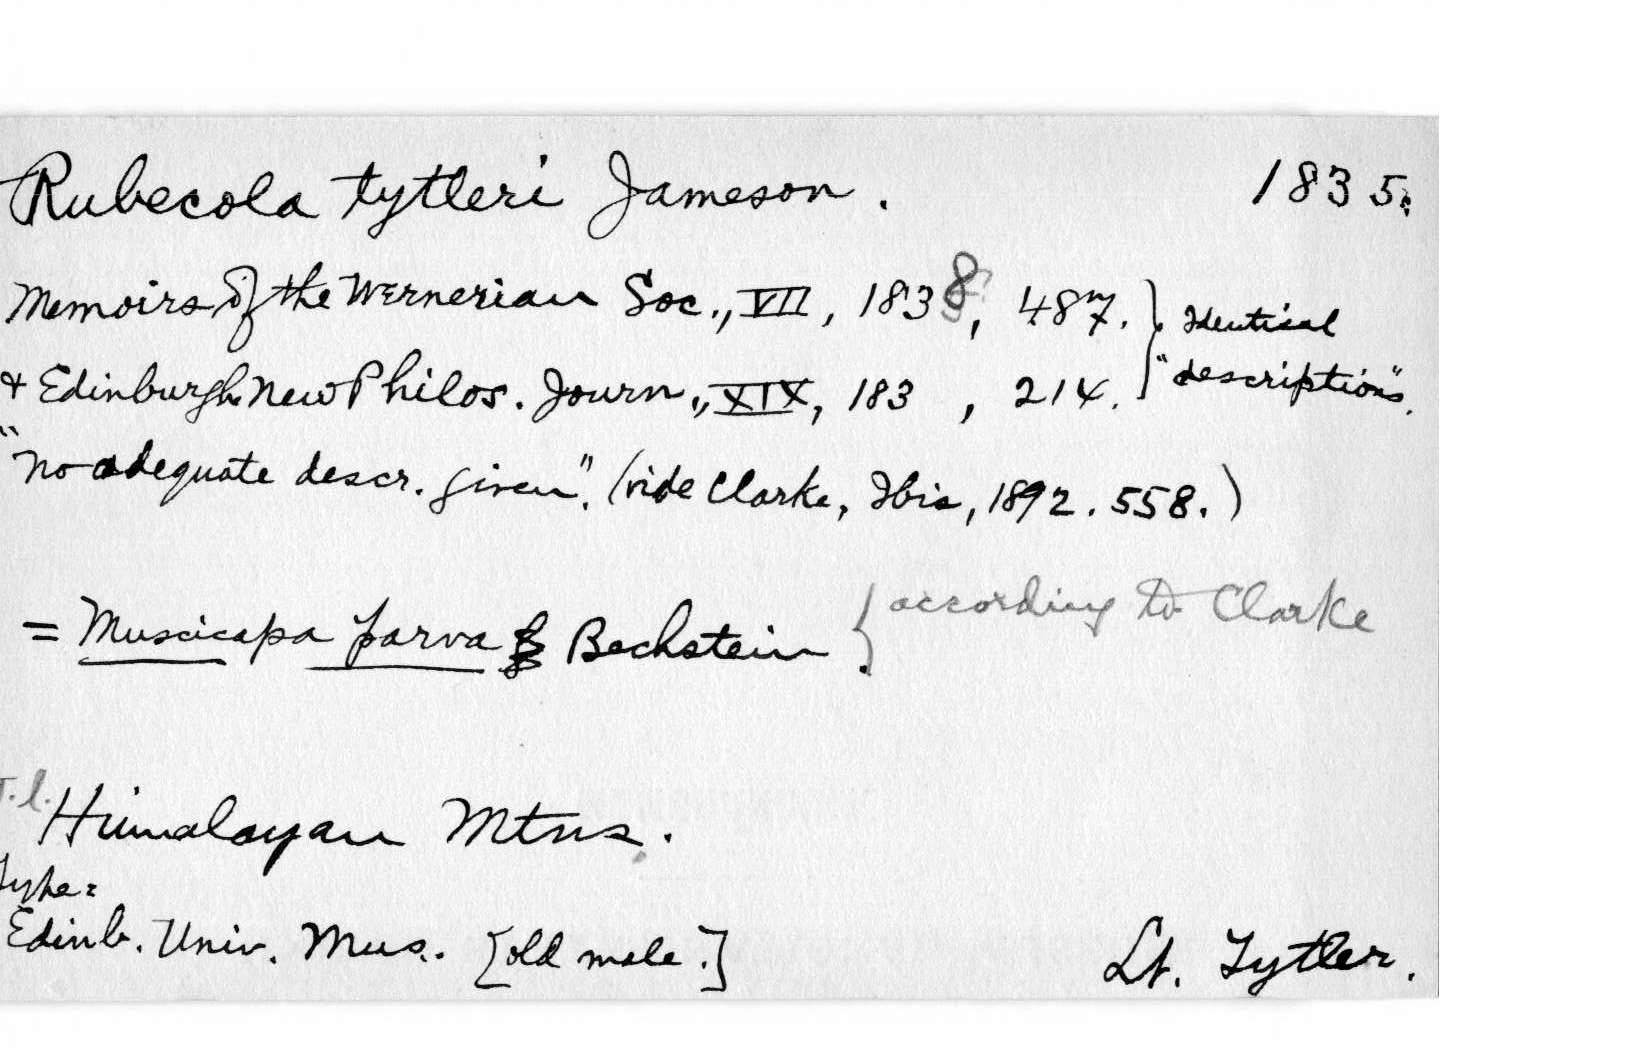 Rubecola tytleri Jameson. 1835.
Memoirs of the Wernerian Soc., VII, 1838, 487. } Identical
& Edinburgh New Philos. Journ., XIX, 183 , 214. } "description".
"no adequate descr. given". (vide Clarke, Ibis, 1892. 558.)
= Muscicapa parva Bechstein. { according to Clarke
T.l. Himalayan Mtns.
Type:
Edinb. Univ. Mus. [old male.] Lt. Tytler.